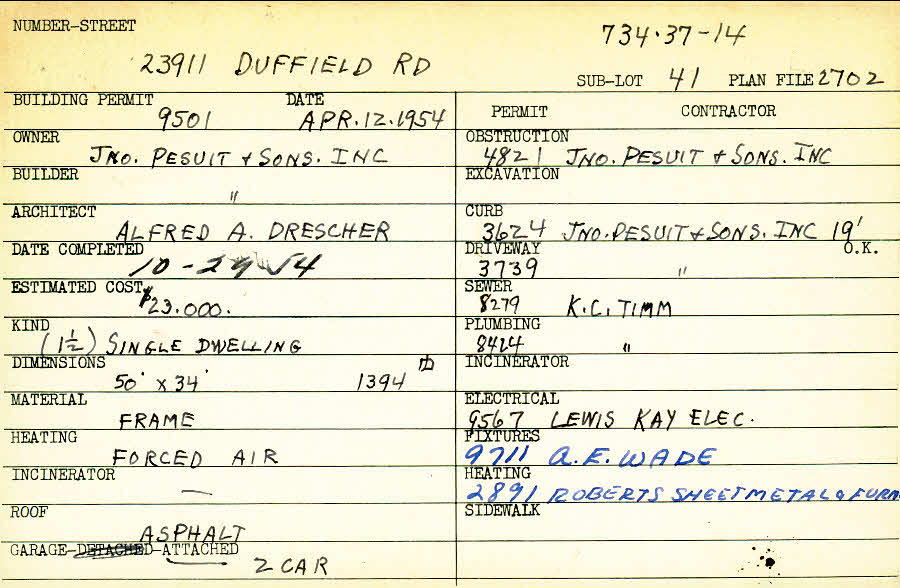 NUMBER-STREET
734·37-14
23911 DUFFIELD RD
SUB-LOT 41 PLAN FILE 2702
BUILDING PERMIT DATE
9501 APR.12.1954
OWNER
JNO. PESUIT & SONS. INC
BUILDER
"
ARCHITECT
ALFRED A. DRESCHER
DATE COMPLETED
10-29 54
ESTIMATED COST
$23.000.
KIND
(1½) SINGLE DWELLING
DIMENSIONS
50' x 34' 1394
MATERIAL
FRAME
HEATING
FORCED AIR
INCINERATOR
—
ROOF
ASPHALT
GARAGE-DETACHED-ATTACHED
2 CAR
PERMIT CONTRACTOR
OBSTRUCTION
4821 JNO. PESUIT & SONS. INC
EXCAVATION
CURB
3624 JNO. PESUIT & SONS. INC 19'
DRIVEWAY O.K.
3739 "
SEWER
8279 K.C. TIMM
PLUMBING
8424 "
INCINERATOR
ELECTRICAL
9567 LEWIS KAY ELEC.
FIXTURES
9711 A.E. WADE
HEATING
2891 ROBERTS SHEETMETAL & FURN
SIDEWALK